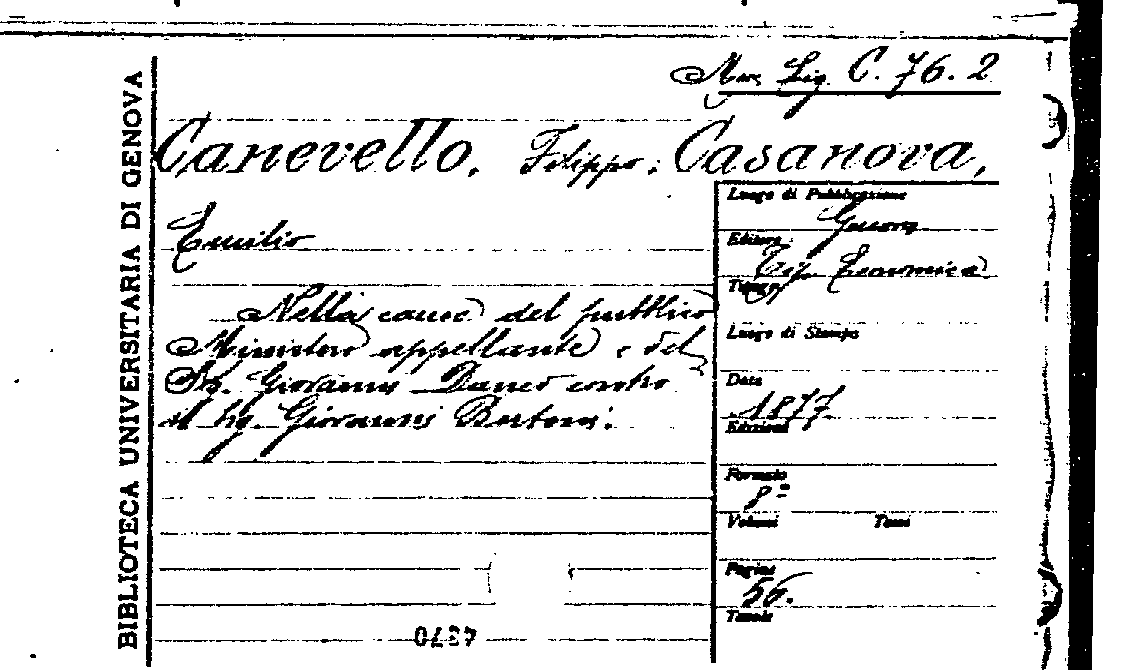 BIBLIOTECA UNIVERSITARIA DI GENOVA
Misc. Lig. C. 76. 2
Canevello, Filippo; Casanova,
Emilio
Nella causa del pubblico
Ministero appellante e del
Sig. Giovanni Daneo contro
il Sig. Giovanni Bertoni.
Luogo di Pubblicazione
Genova
Editore
Tip. Economica
Tipogr.
Luogo di Stampa
Data
1877
Edizione
Formato
8º
Volumi Tomi
Pagine
56.
Tavole